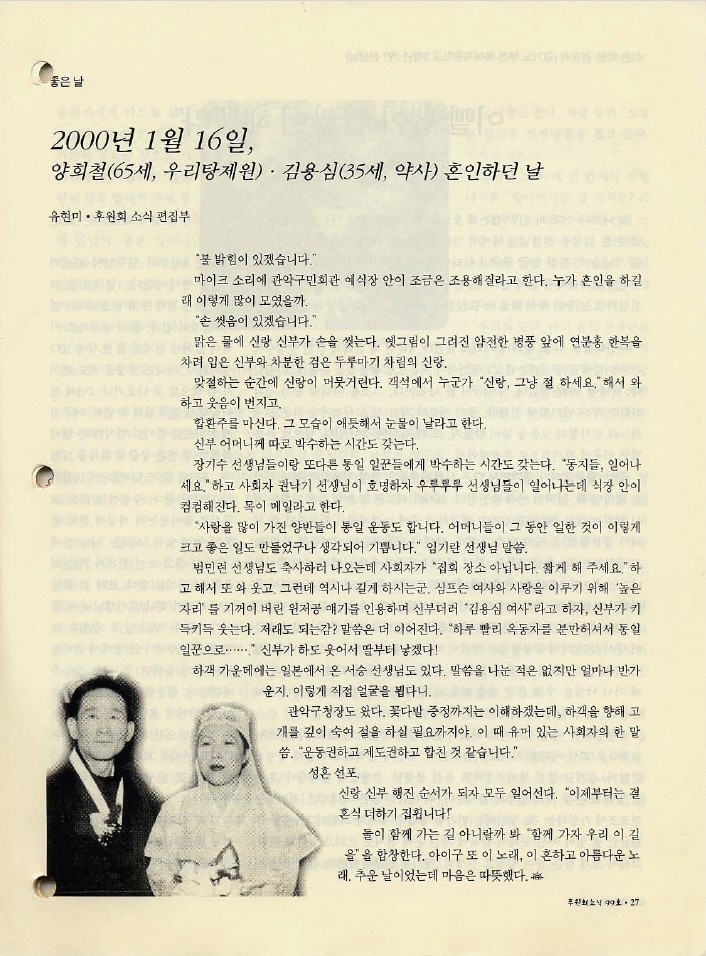 좋은 날
2000년 1월 16일,
양희철(65세, 우리탕제원)·김용심(35세, 약사) 혼인하던 날
유현미·후원회 소식 편집부
“불 밝힘이 있겠습니다.”
마이크 소리에 관악구민회관 예식장 안이 조금은 조용해질라고 한다. 누가 혼인을 하길
래 이렇게 많이 모였을까.
“손 씻음이 있겠습니다.”
맑은 물에 신랑 신부가 손을 씻는다. 옛그림이 그려진 얌전한 병풍 앞에 연분홍 한복을
차려 입은 신부와 차분한 검은 두루마기 차림의 신랑.
맞절하는 순간에 신랑이 머뭇거린다. 객석에서 누군가 “신랑, 그냥 절 하세요.”해서 와
하고 웃음이 번지고,
합환주를 마신다. 그 모습이 애틋해서 눈물이 날라고 한다.
신부 어머니께 따로 박수하는 시간도 갖는다.
장기수 선생님들이랑 또다른 통일 일꾼들에게 박수하는 시간도 갖는다. “동지들, 일어나
세요.”하고 사회자 권낙기 선생님이 호명하자 우루루루 선생님들이 일어나는데 식장 안이
컴컴해진다. 목이 메일라고 한다.
“사랑을 많이 가진 양반들이 통일 운동도 합니다. 어머니들이 그 동안 일한 것이 이렇게
크고 좋은 일도 만들었구나 생각되어 기쁩니다.” 임기란 선생님 말씀.
범민련 선생님도 축사하러 나오는데 사회자가 “집회 장소 아닙니다. 짧게 해 주세요.”하
고 해서 또 와 웃고. 그런데 역시나 길게 하시는군. 심프슨 여사와 사랑을 이루기 위해 ‘높은
자리’를 기꺼이 버린 윈저공 얘기를 인용하며 신부더러 “김용심 여사”라고 하자, 신부가 키
득키득 웃는다. 저래도 되는감? 말씀은 더 이어진다. “하루 빨리 옥동자를 분만하셔서 통일
일꾼으로……” 신부가 하도 웃어서 딸부터 낳겠다!
하객 가운데에는 일본에서 온 서승 선생님도 있다. 말씀을 나눈 적은 없지만 얼마나 반가
운지. 이렇게 직접 얼굴을 뵙다니.
관악구청장도 왔다. 꽃다발 증정까지는 이해하겠는데, 하객을 향해 고
개를 깊이 숙여 절을 하실 필요까지야. 이 때 유머 있는 사회자의 한 말
씀. “운동권하고 제도권하고 합친 것 같습니다.”
성혼 선포.
신랑 신부 행진 순서가 되자 모두 일어선다. “이제부터는 결
혼식 더하기 집휩니다!”
둘이 함께 가는 길 아니랄까 봐 “함께 가자 우리 이 길
을”을 합창한다. 아이구 또 이 노래, 이 흔하고 아름다운 노
래. 추운 날이었는데 마음은 따뜻했다.
후원회소식 99호·27